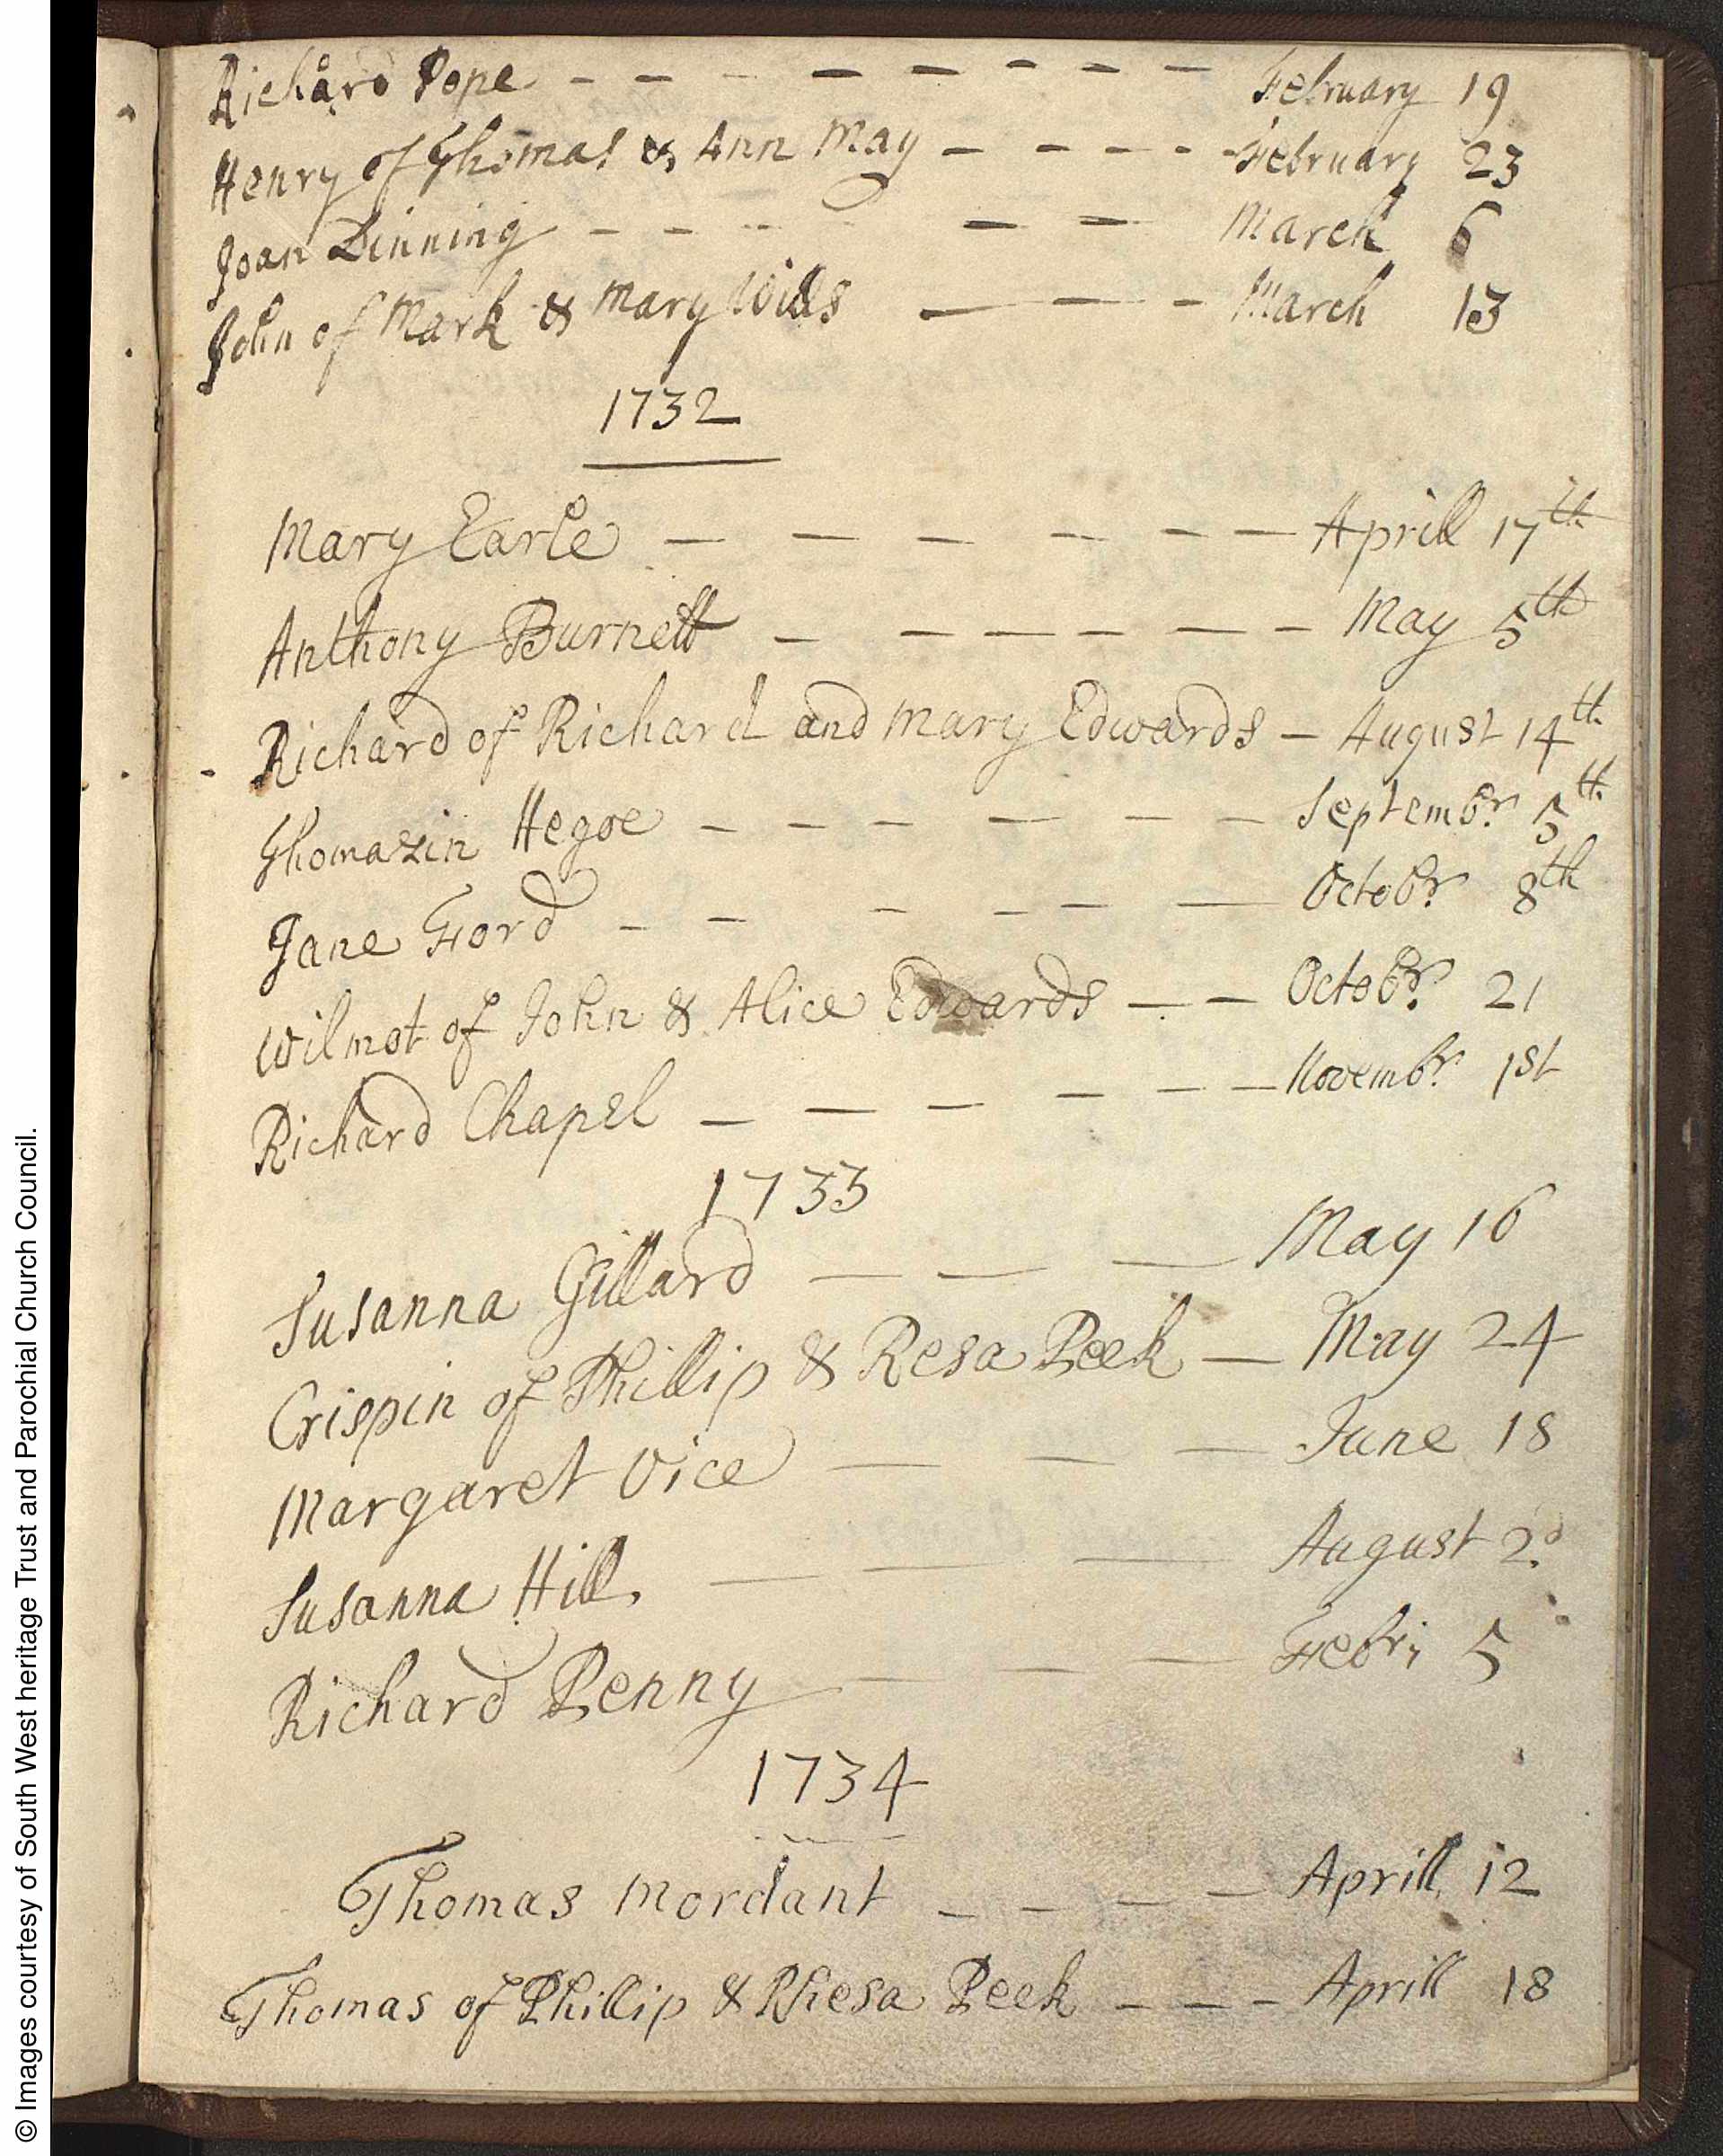 Richard Pope - - - - - - - - - February 19
Henry of Thomas & Ann May - - - - February 23
Joan Dinning - - - - - March 6
John of Mark & Mary Wills - - - March 13
1732
Mary Earle - - - - - - Aprill 17th
Anthony Burnett - - - - - - May 5th
Richard of Richard and Mary Edwards - August 14th
Thomazin Hegoe - - - - - - Septembr. 5th
Jane Ford - - - - - - Octobr. 8th
Wilmot of John & Alice Edwards - - Octobr. 21
Richard Chapel - - - - - - Novembr. 1st
1733
Susanna Gillard - - - May 16
Crispin of Phillip & Resa Peek - May 24
Margaret Vice - - - June 18
Susanna Hill. - - - August 2d
Richard Penny - - - Febri 5
1734
Thomas Mordant - - - - Aprill 12
Thomas of Phillip & Rhesa Peek - - - Aprill 18
© Images courtesy of South West heritage Trust and Parochial Church Council.